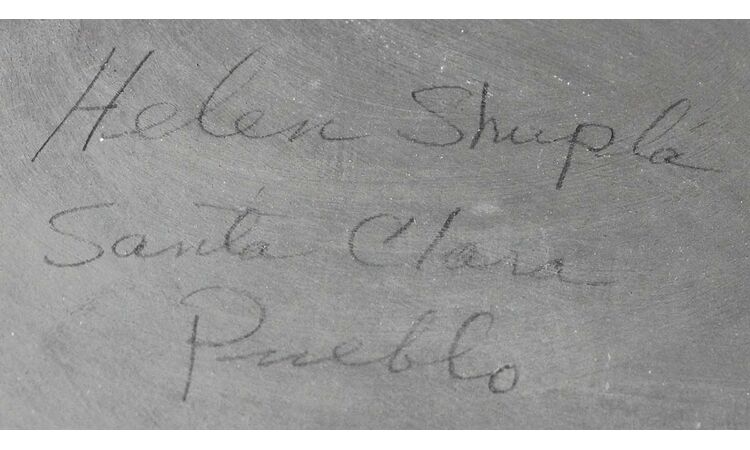 Helen Shupla
Santa Clara
Pueblo